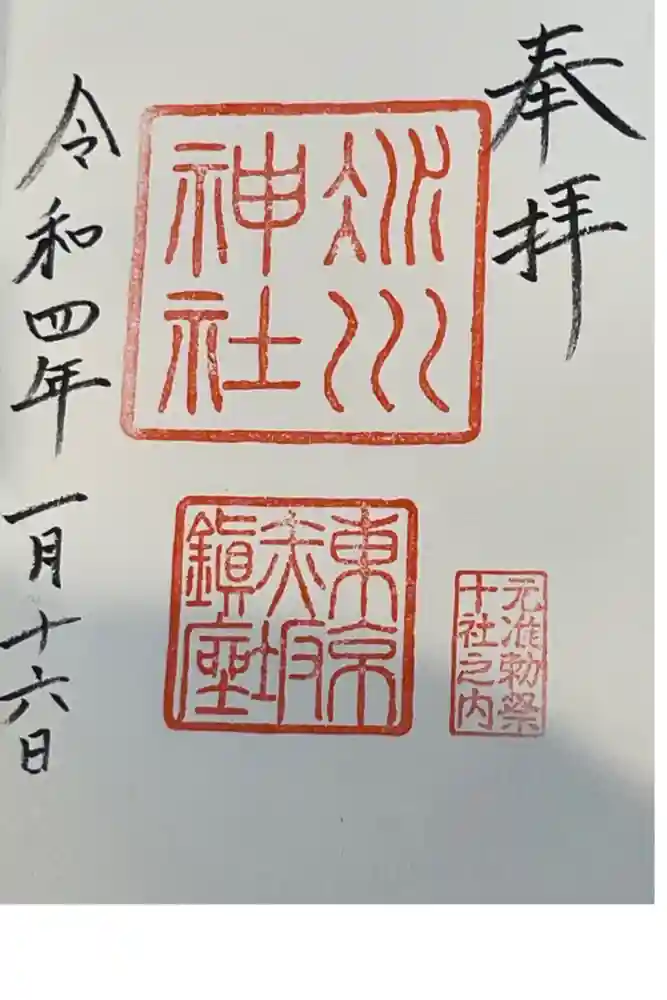 奉拝
氷川
神社
東京
赤坂
鎮座
元准勅祭
十社之内
令和四年一月十六日